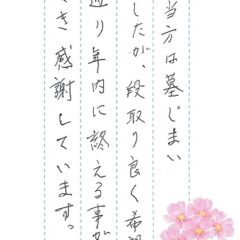 当方は墓じまい
したが、段取り良く希望
通り年内に終える事が
でき感謝しています。